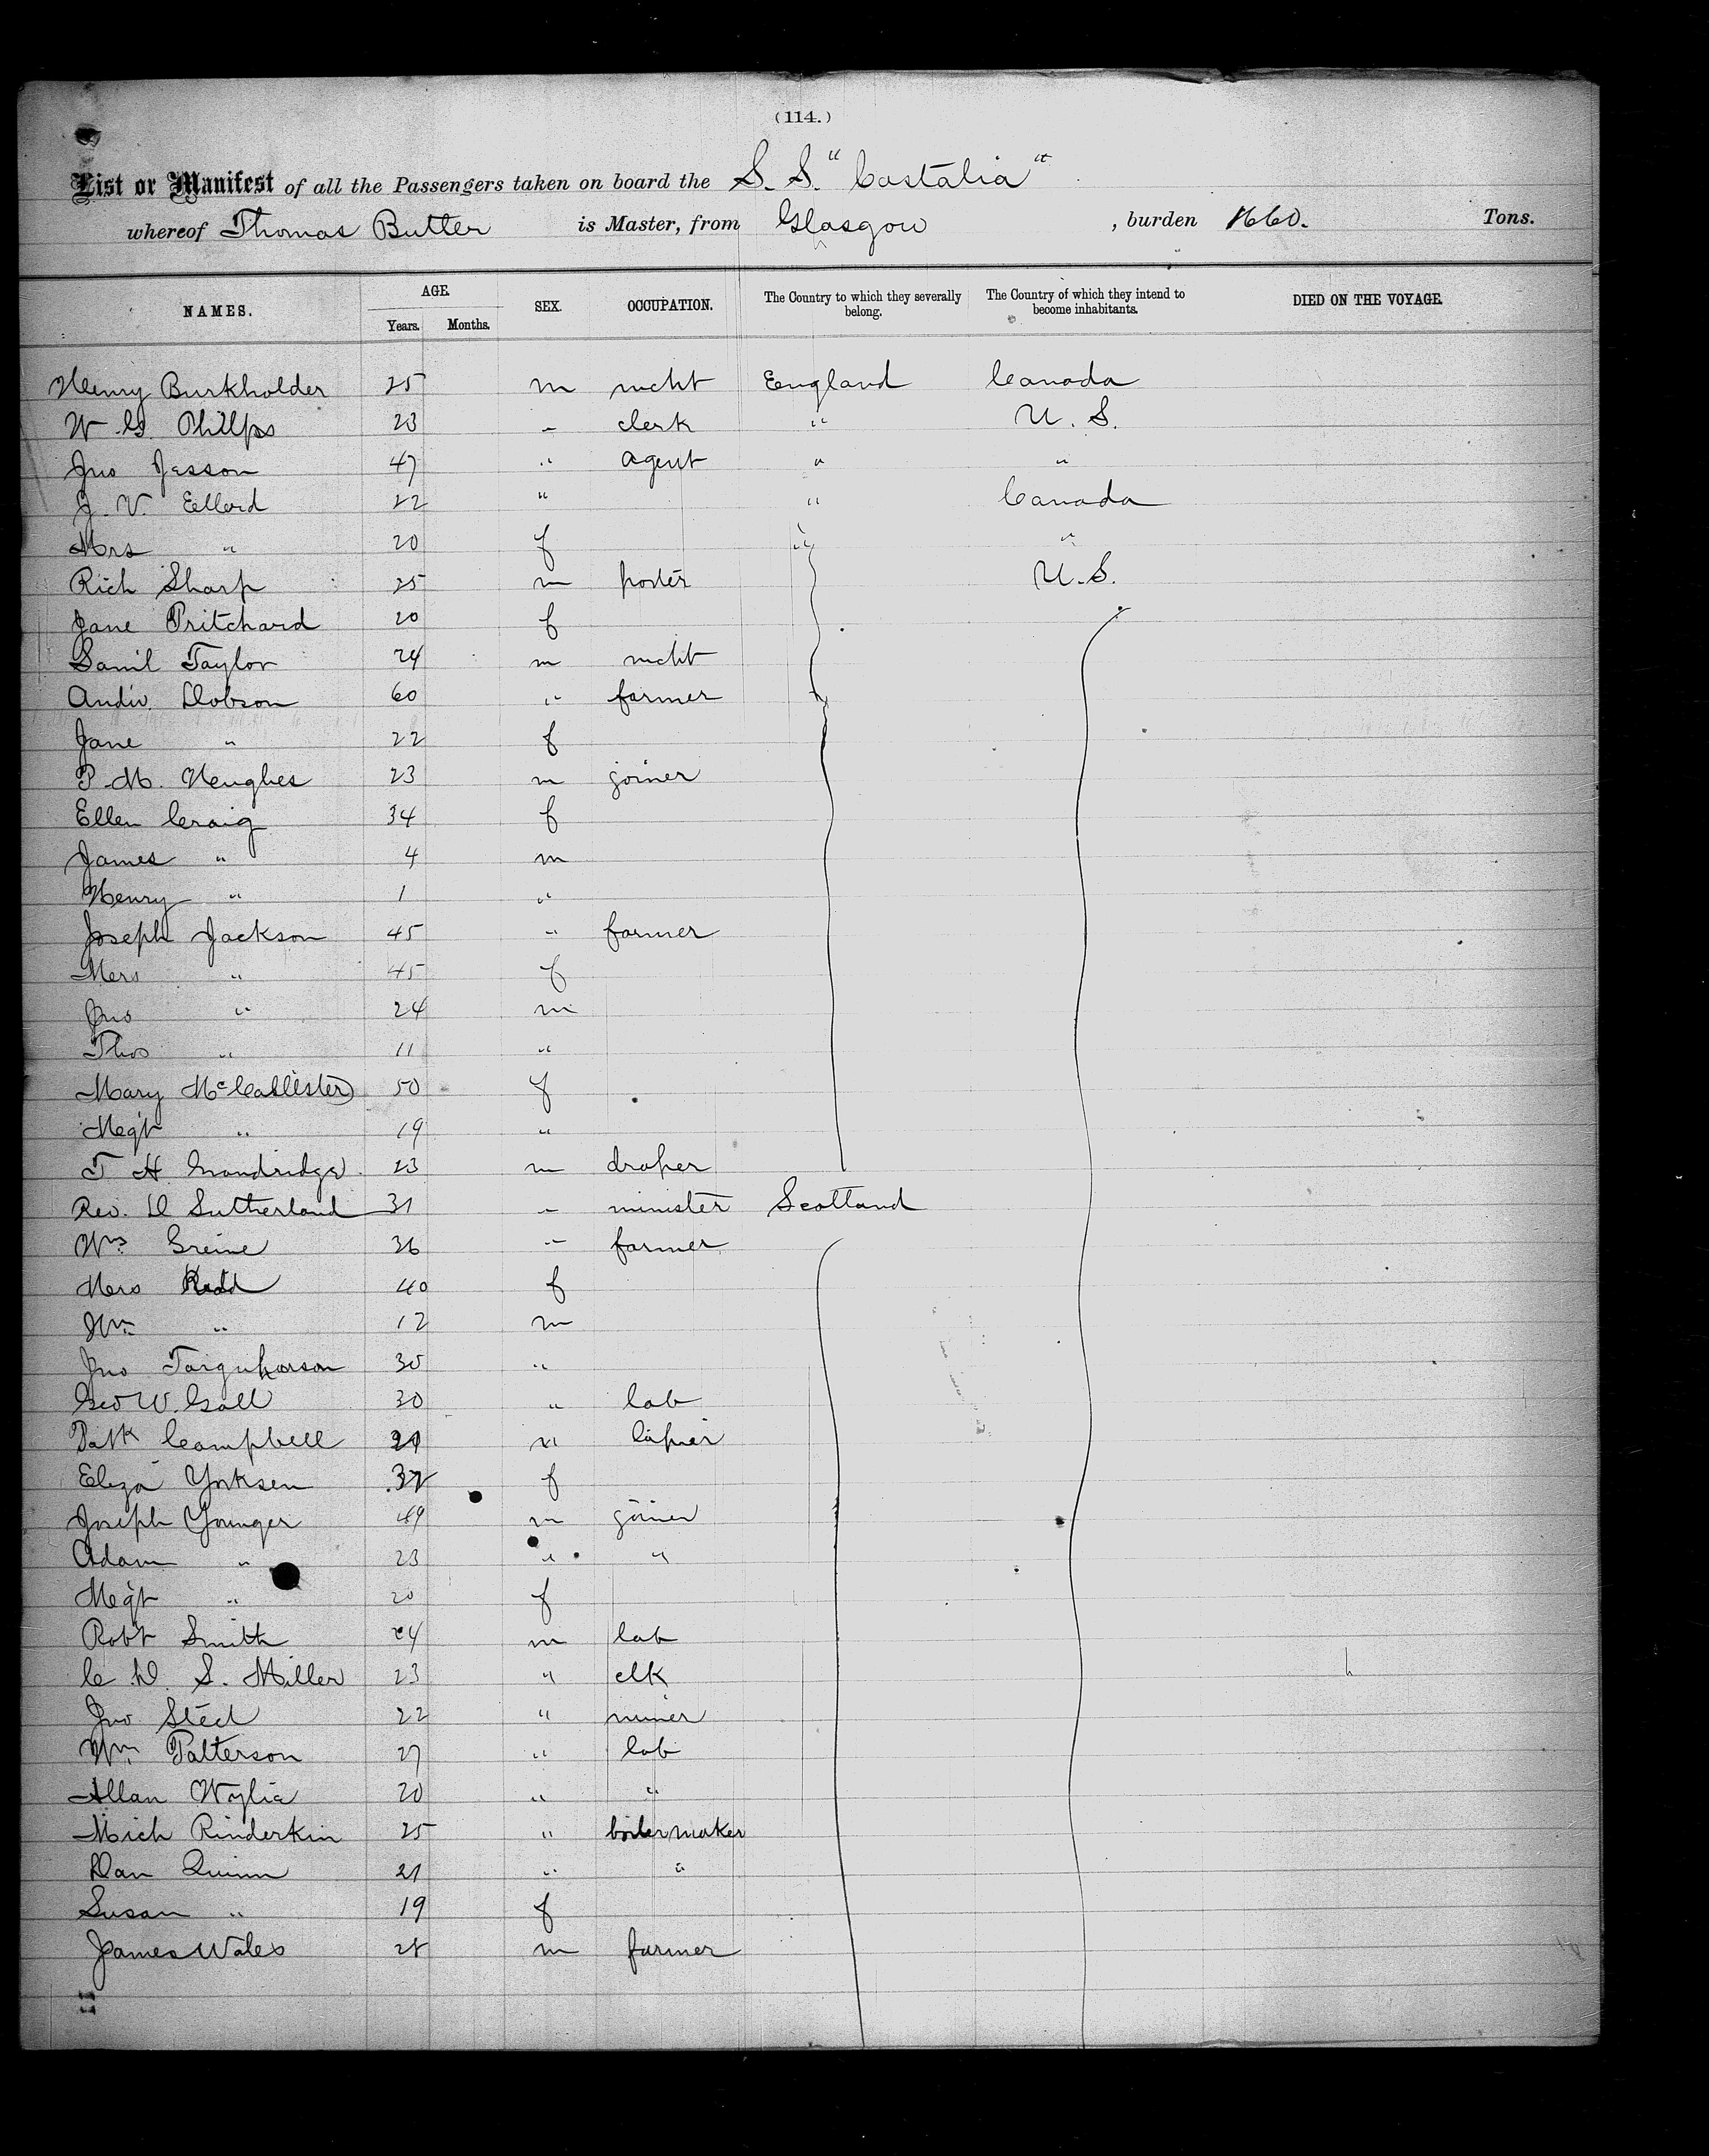 (114.)
List or Manifest of all the Passengers taken on board the S. S. "Castalia"
whereof Thomas Butter is Master, from Glasgow, burden 1660. Tons.
NAMES. AGE. SEX. OCCUPATION. The Country to which they severally belong. The Country of which they intend to become inhabitants. DIED ON THE VOYAGE.
Years. Months.
Henry Burkholder 25 m mcht England Canada
W G Phillps 23 " clerk " U. S.
Jno Jesson 47 " agent " "
J. V. Ellard 22 " " Canada
Mrs " 20 f " "
Rich Sharp 25 m porter U. S.
Jane Pritchard 20 f
Saml Taylor 24 m mcht
Andw. Dobson 60 " farmer
Jane " 22 f
P. M. Heughes 23 m joiner
Ellen Craig 34 f
James " 4 m
Henry " 1 "
Joseph Jackson 45 " farmer
Mrs " 45 f
Jno " 24 m
Thos " 11 "
Mary McCallister 50 f
Megt " 19 "
T H 23 m draper
Rev. D Sutherland 31 " minister Scotland
Wm 36 " farmer
Mrs 40 f
Wm " 12 m
Jno Farquharson 30 "
Geo W. Gall 30 " lab
Patk Campbell "
Eliza Yorksen f
Joseph Younger 49 m joiner
Adam " 23 " "
Megt " 20 f
Robt Smith 24 m lab
C. D. S. Miller 23 " clk
Jno Steel 22 " miner
Wm Patterson 27 " lab
Allan Wylie 20 " "
Mich Rinderkin 25 " boiler maker
Dan Quinn 21 " "
Susan " 19 f
James Wales m farmer